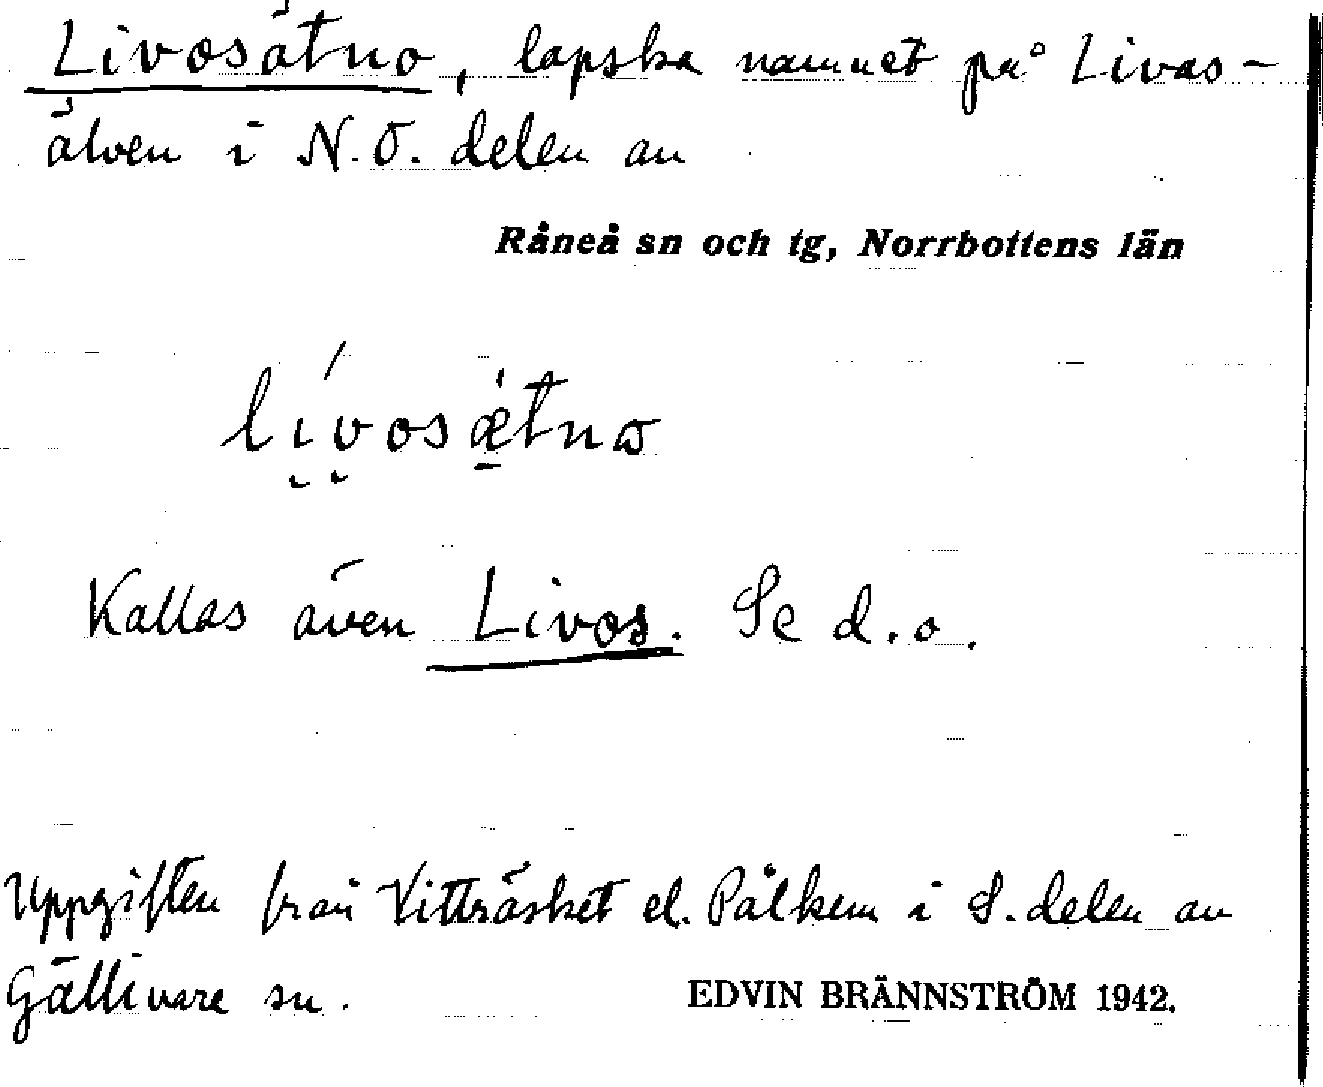 Livosätno, lapska namnet på Livas-
älven i N.O. delen av
Råneå sn och tg, Norrbottens län
lívosǽtnɷ
Kallas även Livos. Se d.o.
Uppgiften från Vitträsket el. Pålkem i S. delen av
Gällivare sn.
EDVIN BRÄNNSTRÖM 1942.